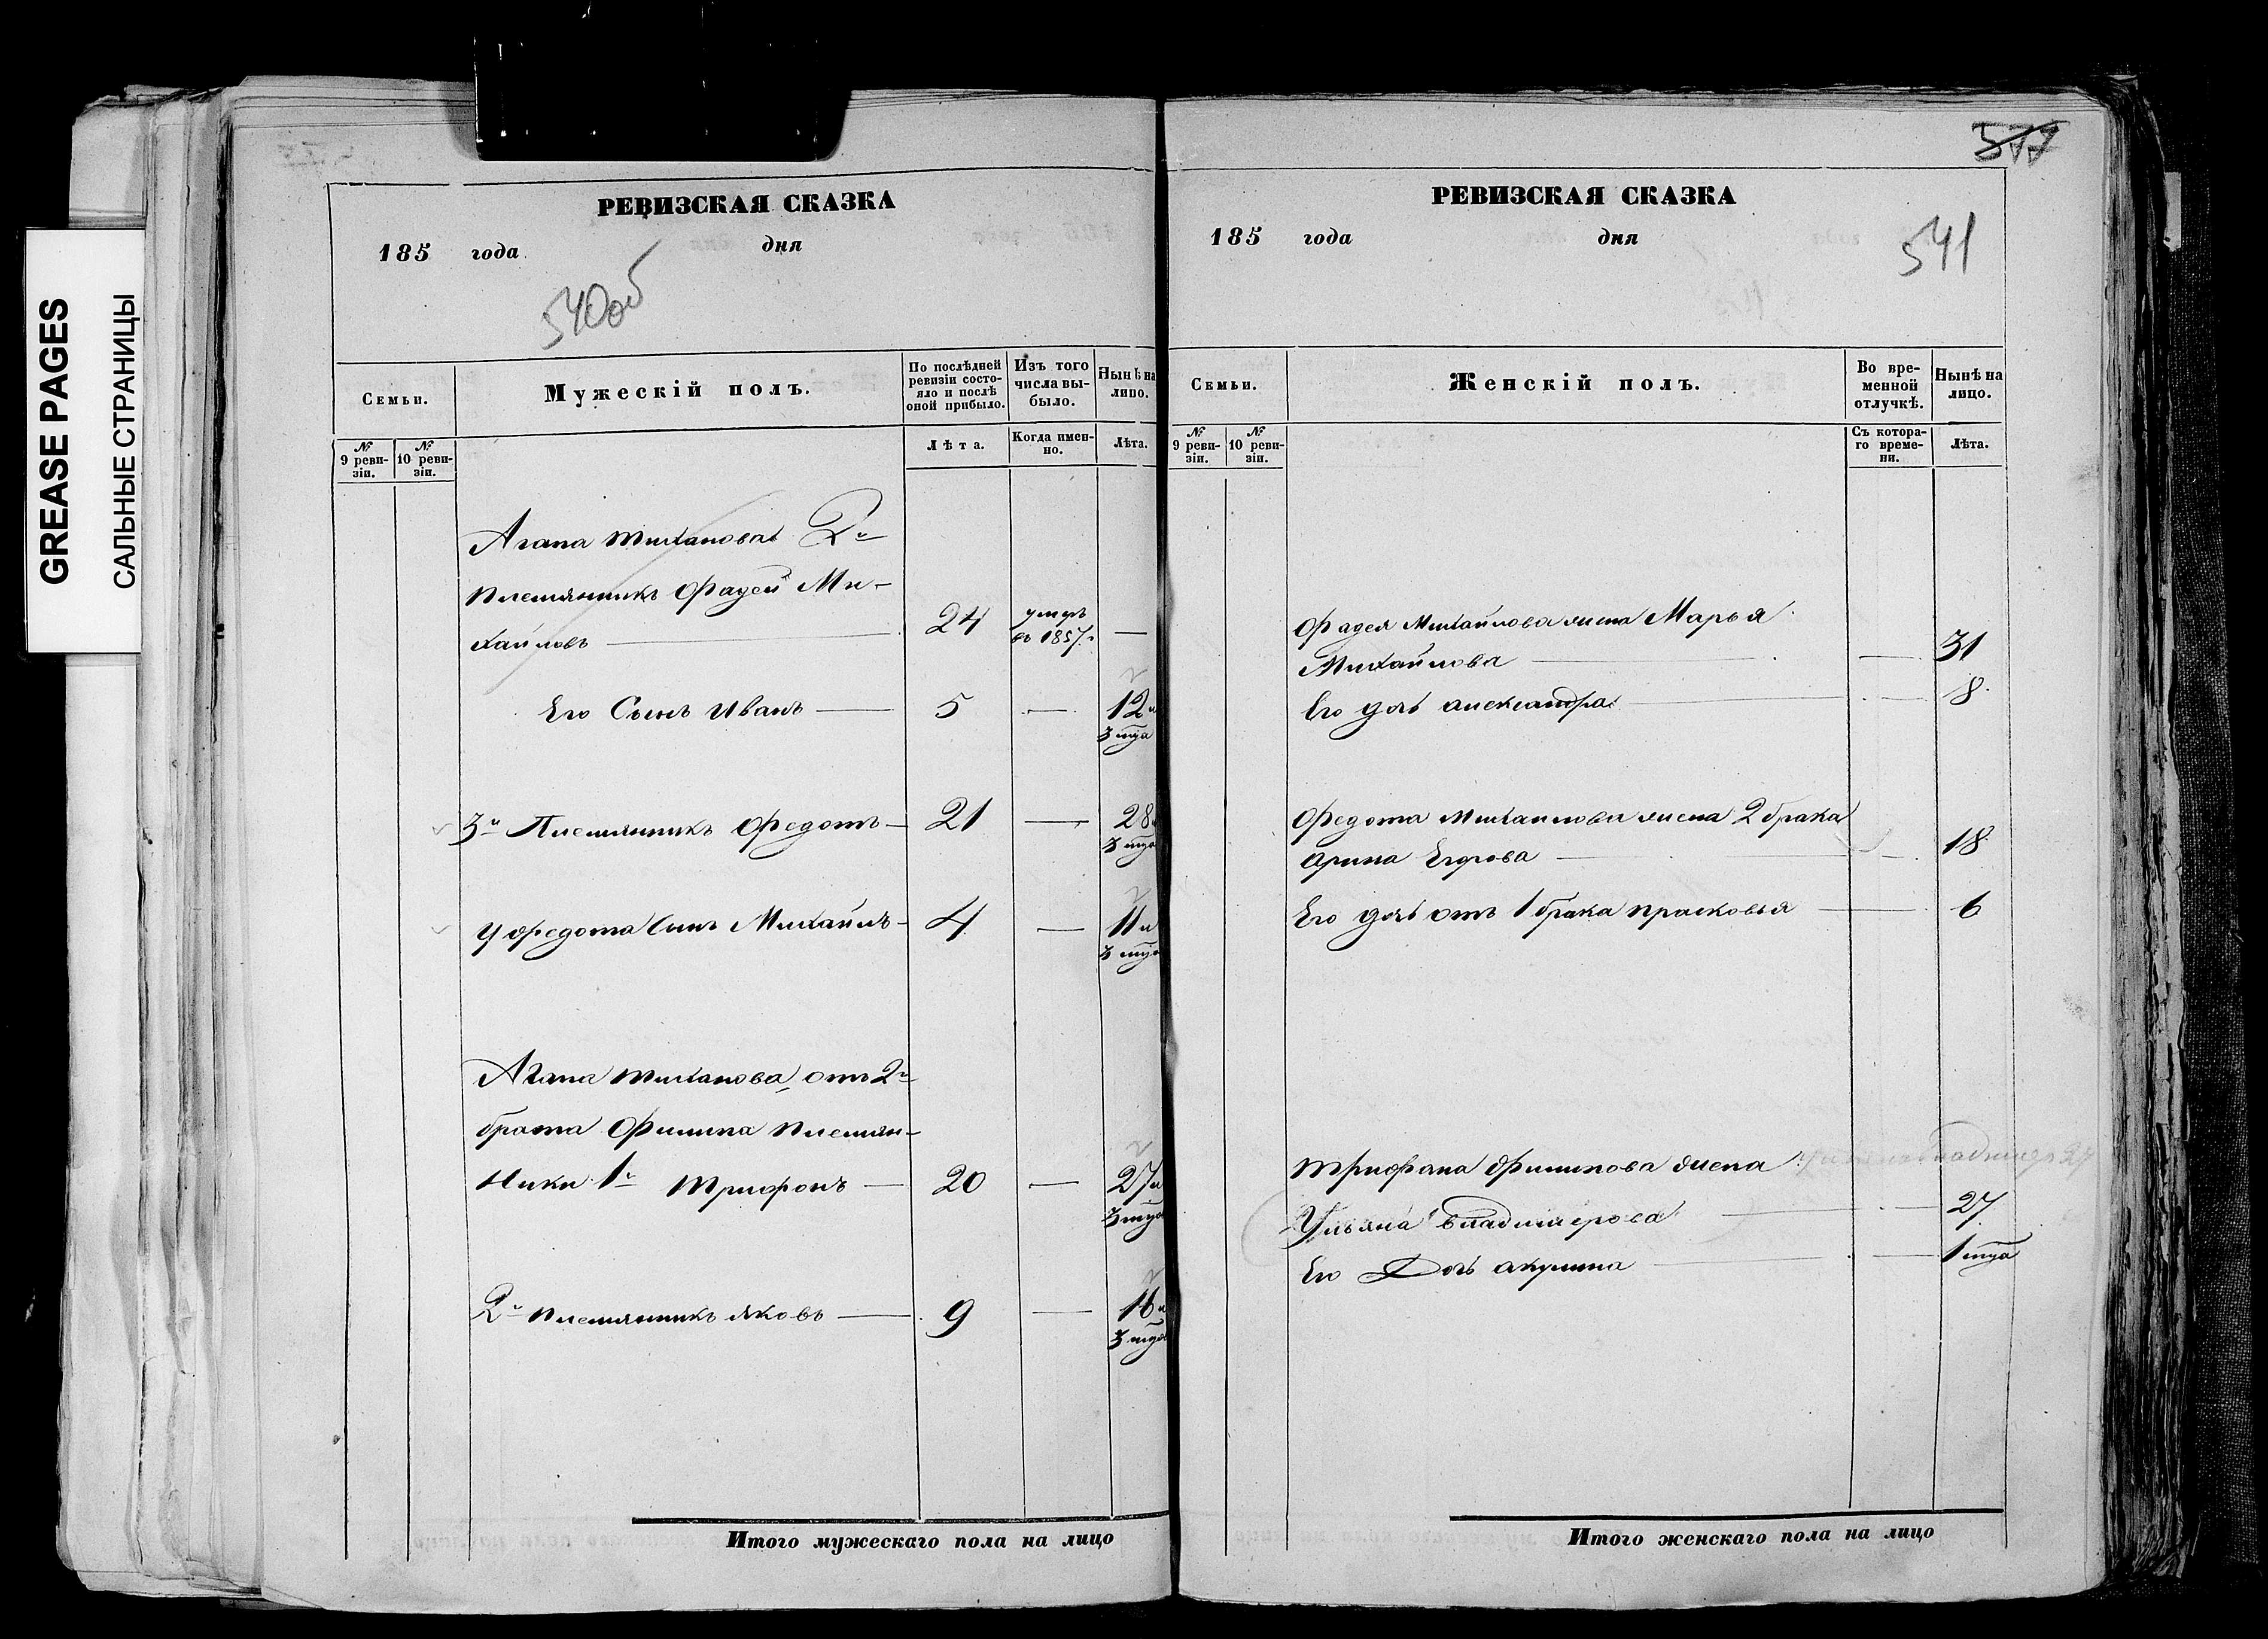 GREASE PAGES
САЛЬНЫЕ СТРАНИЦЫ
РЕВИЗСКАЯ СКАЗКА
185 года дня
540об
Семьи.
Мужескій полъ.
По послѣдней ревизіи состояло и послѣ оной прибыло.
Изъ того числа выбыло.
Нынѣ на лицо.
№ 9 ревизіи.
№ 10 ревизіи.
Лѣта.
Когда именно.
Лѣта.
Агапа Тихановa 2й
племянникъ Фадей Ми-
хайловъ — 24 умеръ въ 1857г. —
Его Сынъ Иванъ — 5 — 12 и
3 мца
3й Племянникъ Федотъ — 21 — 28
3 мца
У Федота Сынъ Михайлъ — 4 — 11 и
3 мца
Агапа Тиханова отъ 2й
брата Филипа племян-
ники 1й Трифонъ — 20 — 27 и
3 мца
2й племянникъ Яковъ — 9 — 16 и
3 мца
Итого мужескаго пола на лицо
577
РЕВИЗСКАЯ СКАЗКА
185 года дня
541
Семьи.
Женскій полъ.
Во временной отлучкѣ.
Нынѣ на лицо.
№ 9 ревизіи.
№ 10 ревизіи.
Съ котораго времени.
Лѣта.
Фадея Михайлова жена Марья
Михайлова — — 31
Его дочь александра — — 8
Федота Михайлова жена 2 брака
Арина Егорова — — 18
Его дочь отъ 1 брака прасковья — 6
Трифана Филипова жена
Ульяна владимерова — — 27
Его Дочь акулина — — 1 мца
Итого женскаго пола на лицо